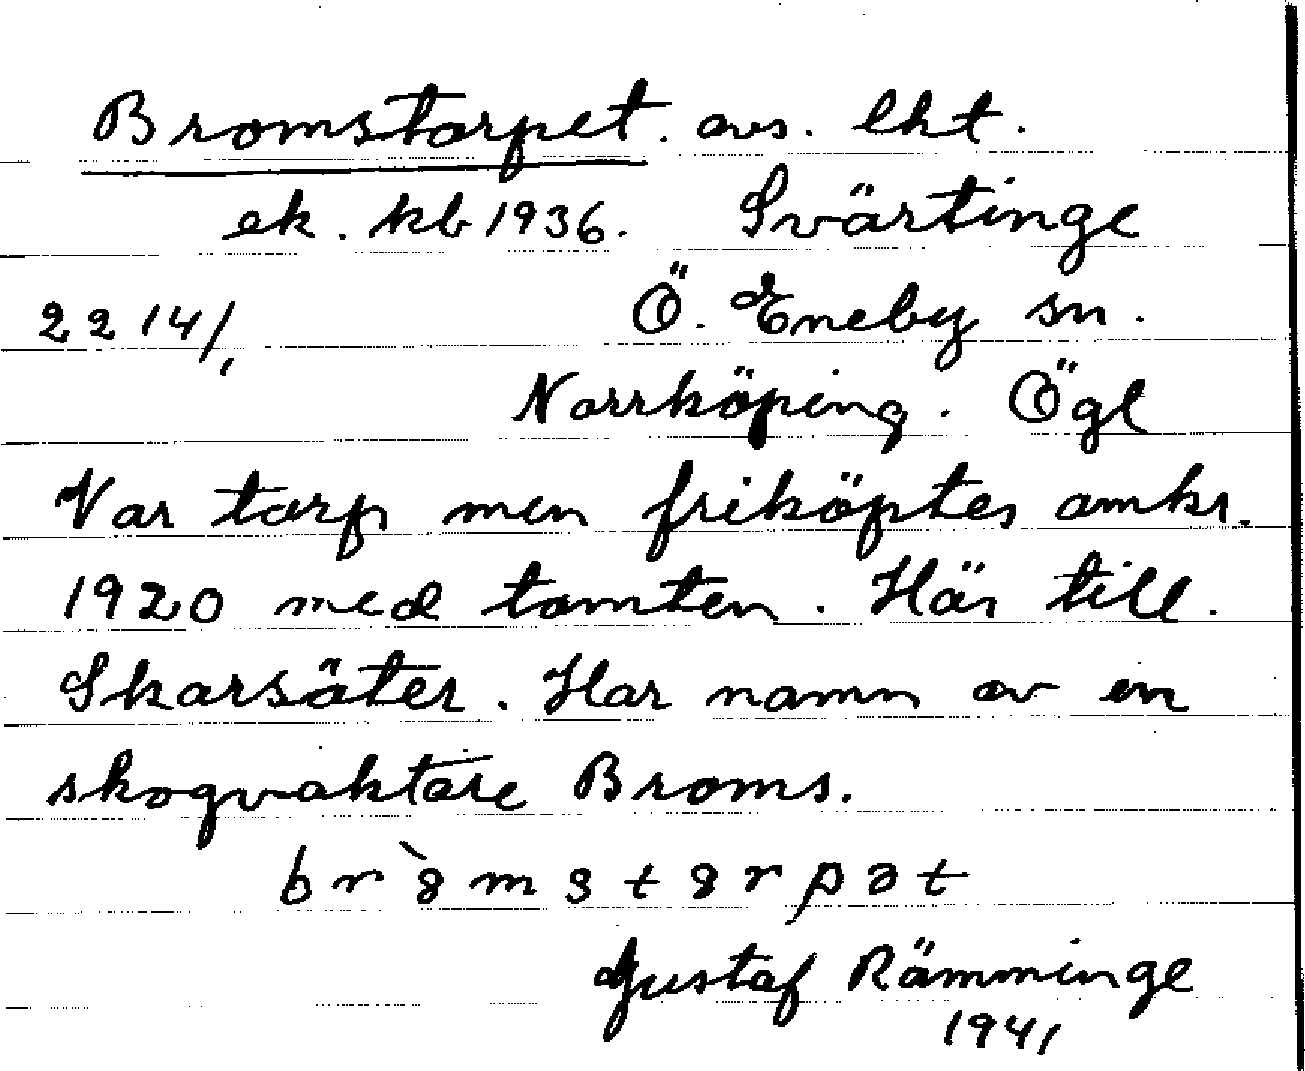 Bromstorpet. avs. lht.
ek. kb 1936. Svärtinge
2214/1 Ö. Eneby sn.
Norrköping. Ögl
Var torp men friköptes omkr.
1920 med tomten. Hör till.
Skarsäter. Har namn av en
skogvaktare Broms.
br`ꝏmstꝏrpət
Gustaf Rämminge
1941